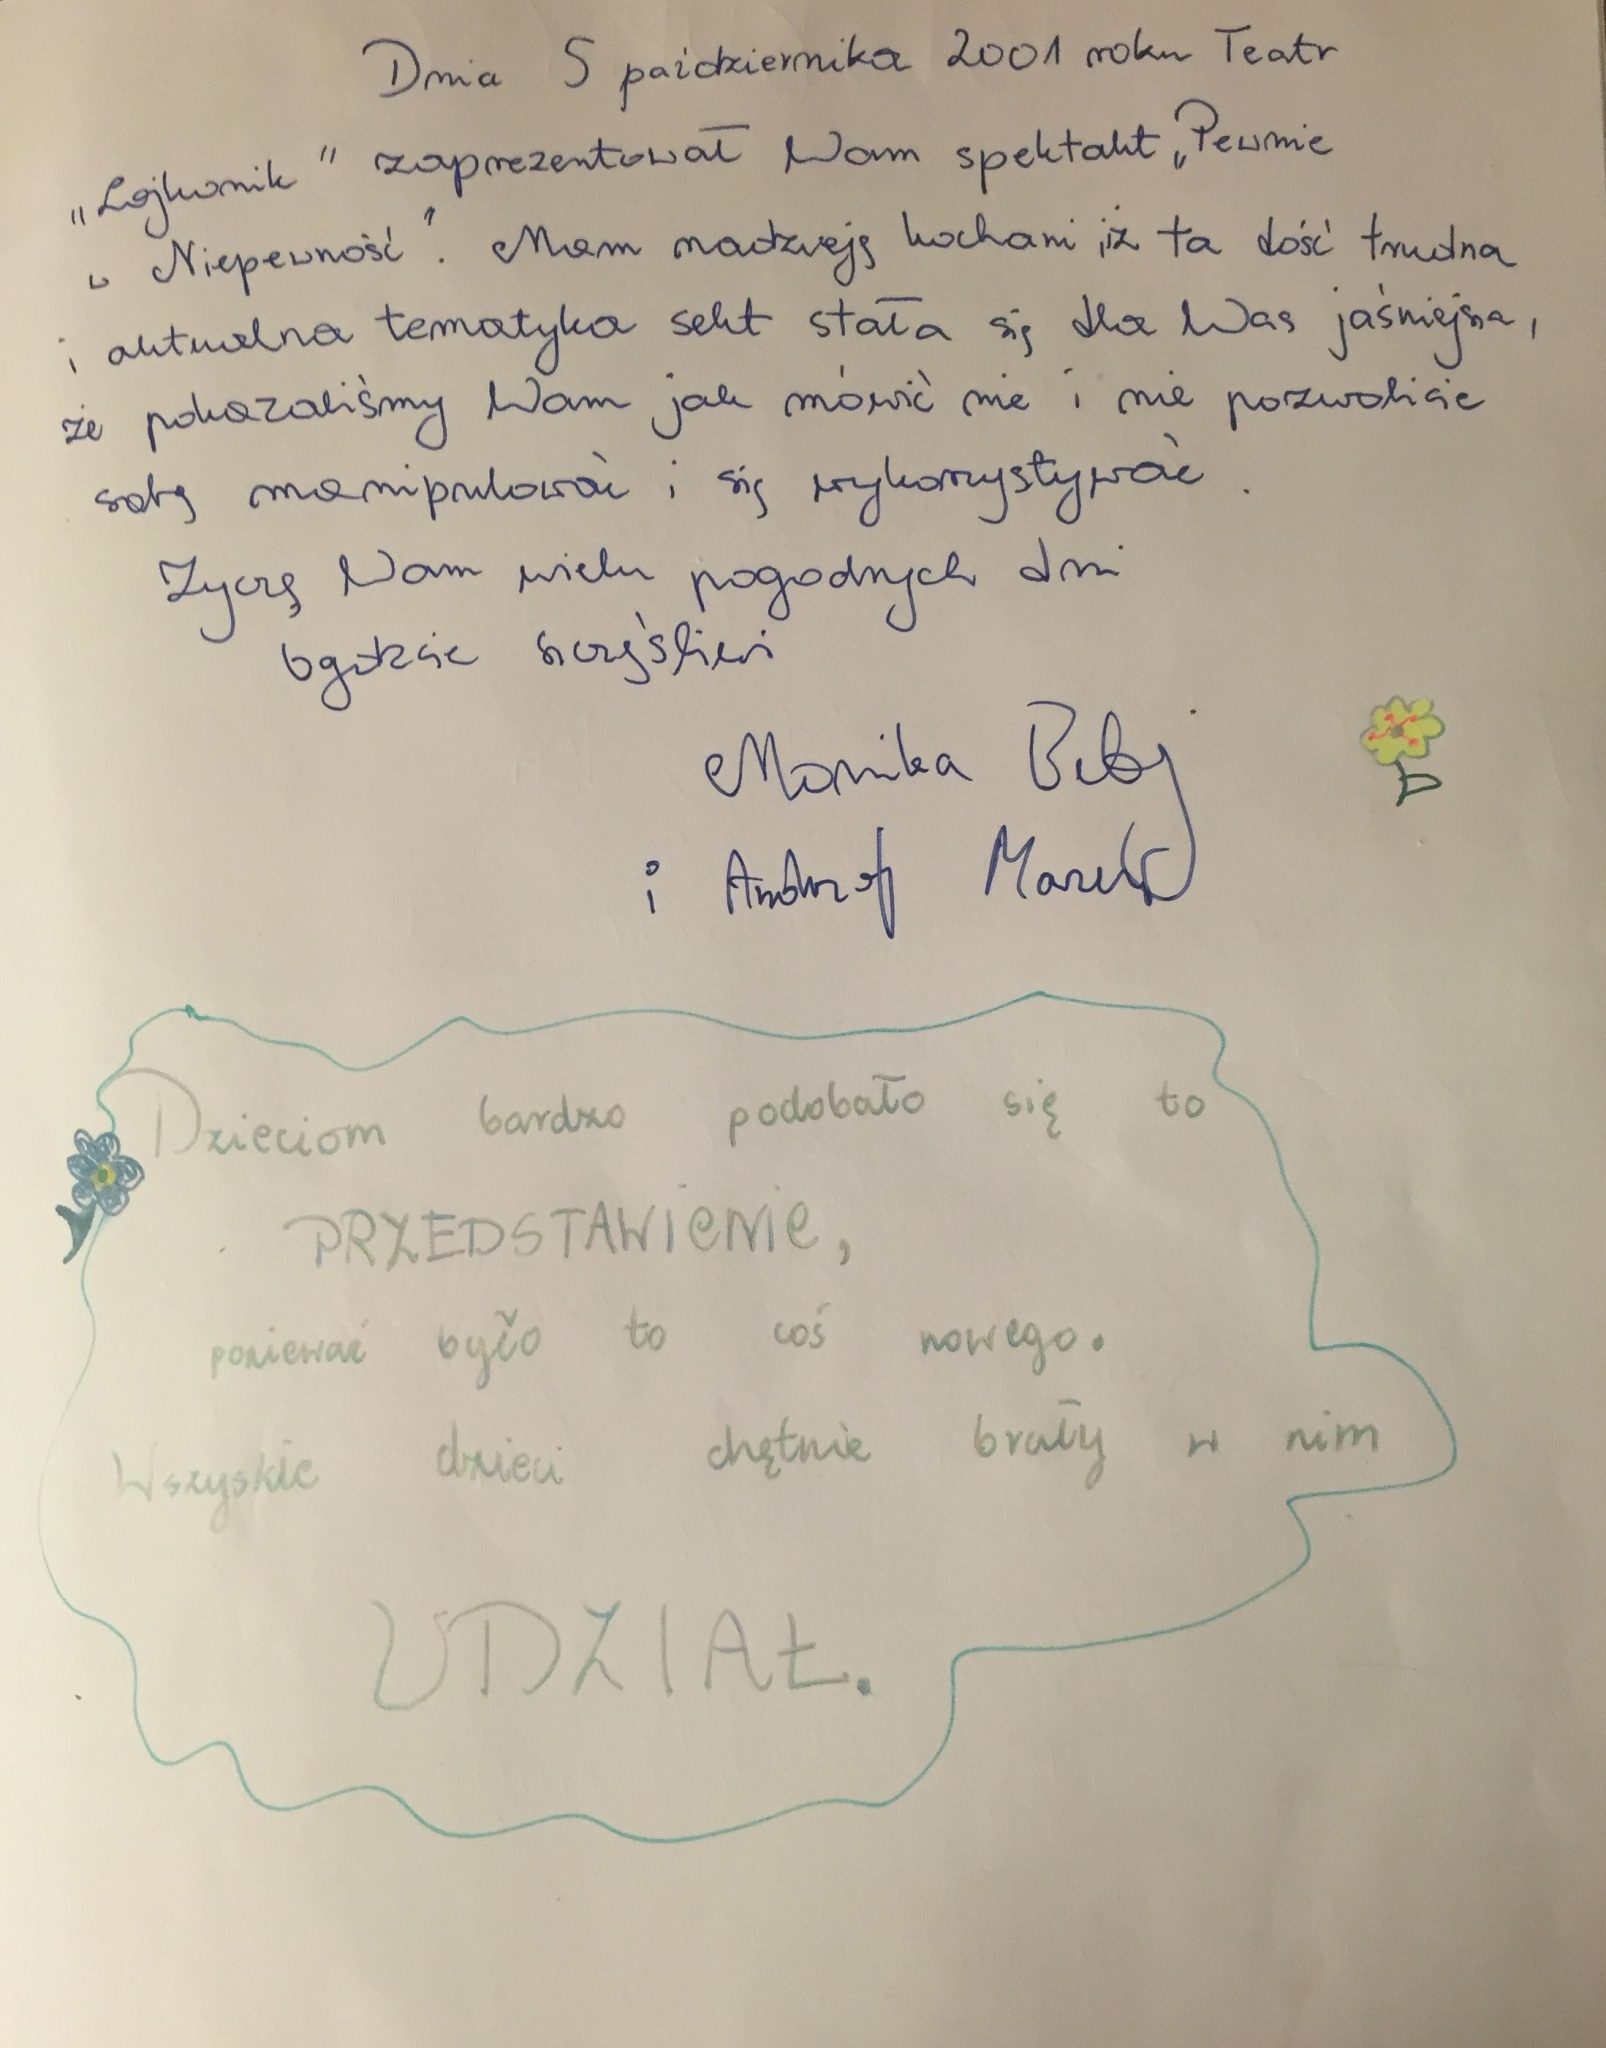 Dnia 5 października 2001 roku Teatr
" zaprezentował Wam spektakl „Pewnie
w Niepewność". Mam nadzieję kochani, iż ta dość trudna
i aktualna tematyka sekt stała się dla Was jaśniejsza,
że pokazaliśmy Wam jak mówić nie i nie pozwolicie
sobą manipulować i się wykorzystywać.
Życzę Wam wielu pogodnych dni
bądźcie szczęśliwi
Monika
i Andrzej
Dzieciom bardzo podobało się to
PRZEDSTAWIENIE,
ponieważ było to coś nowego.
Wszyskie dzieci chętnie brały w nim
UDZIAŁ.